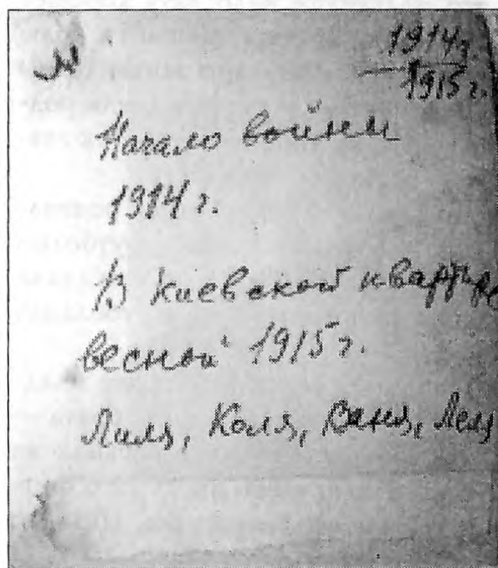 1914г.
1915 г.
Начало войны
1914 г.
В киевской квартире
весной 1915 г.
Лиля, Коля, Ваня, Леля